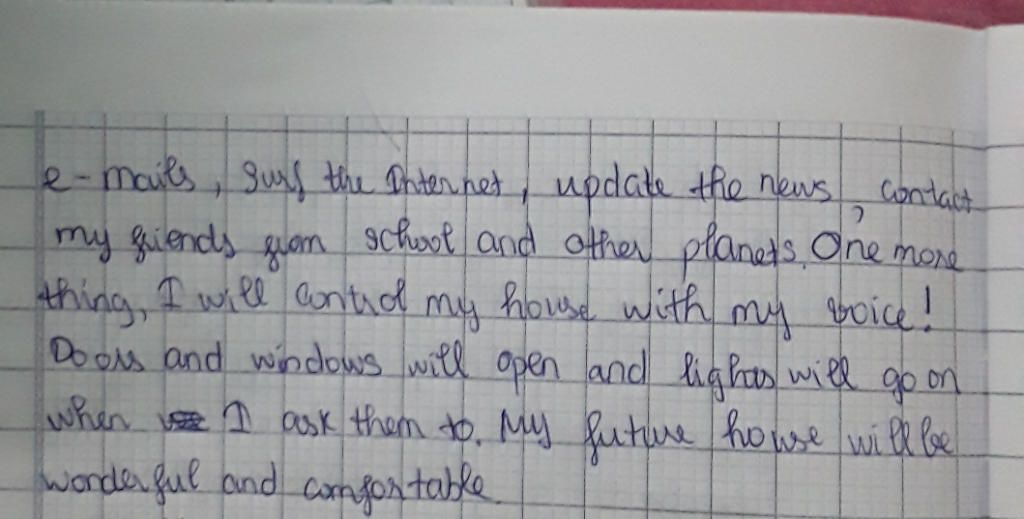 e-mails, surf the Internet, update the news, contact
my friends from school and other planets. One more
thing, I will control my house with my voice!
Doors and windows will open and lights will go on
when I ask them to. My future house will be
wonderful and comfortable.